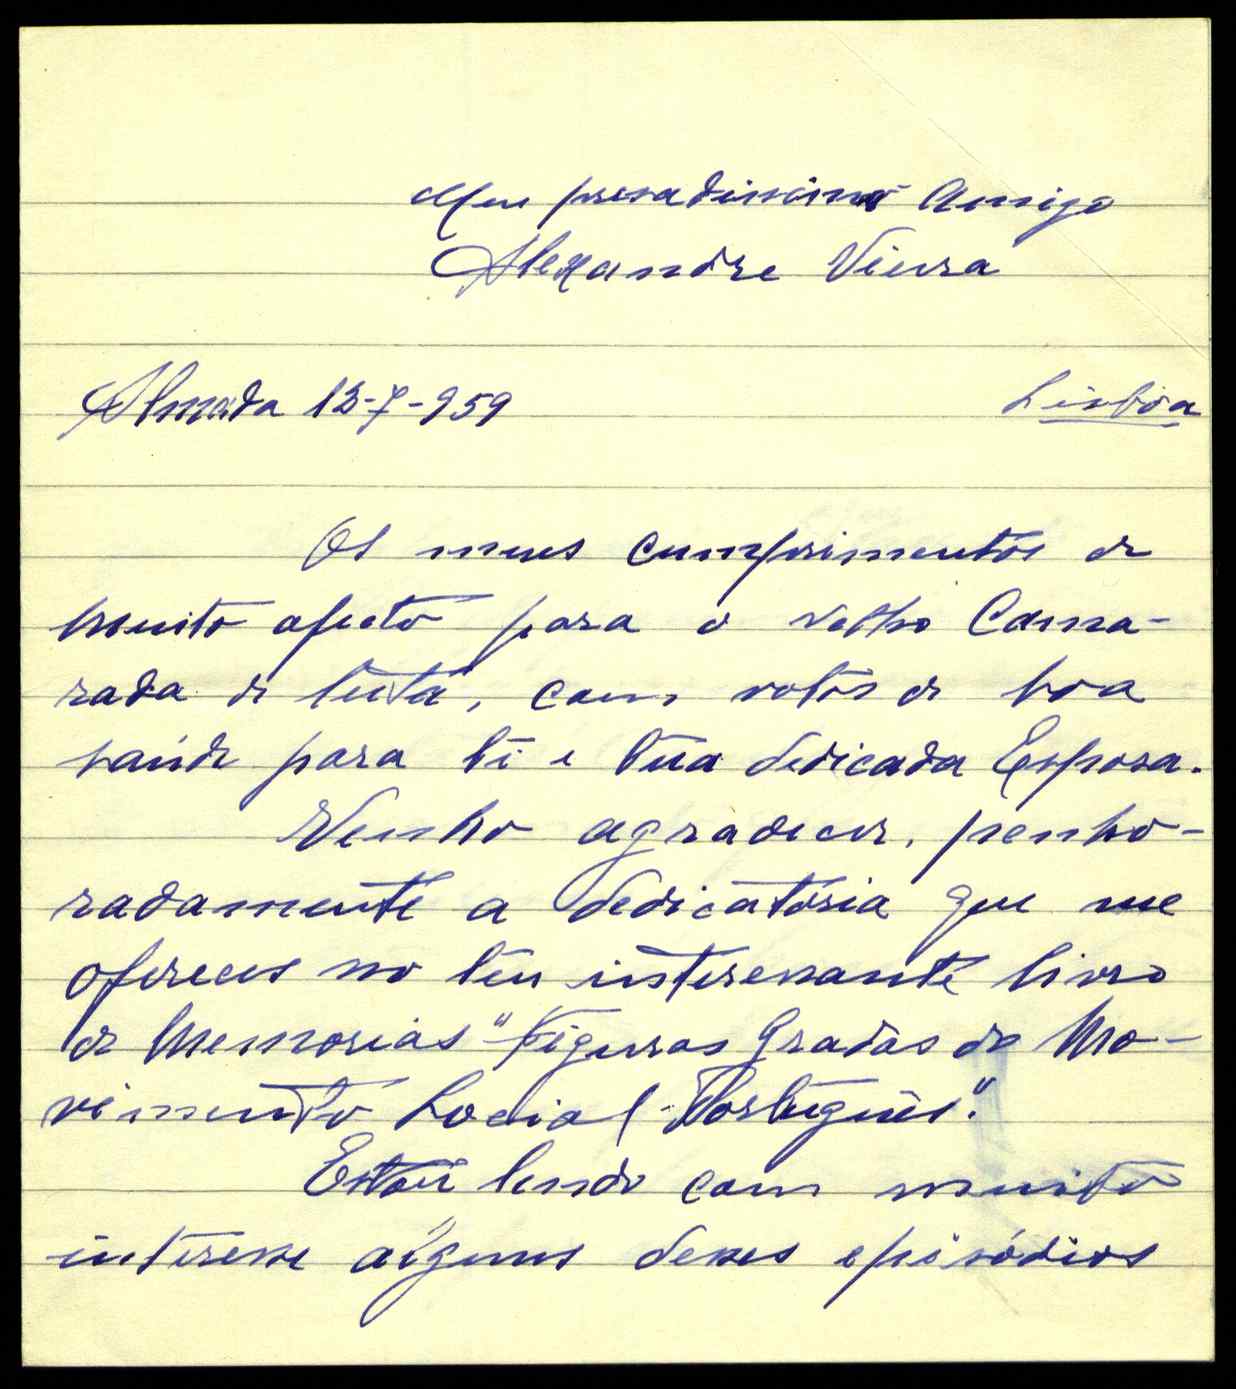 Meu presadissimo Amigo
Alexandre Vieira
Almada 13-7-959
Lisbôa
Os meus cumprimentos de
muito afecto para o velho Cama-
rada de luta, com votos de boa
saúde para ti e tua dedicada Esposa.
Venho agradecer, penho-
radamente a dedicatória que me
ofereces no teu interessante livro
de Memorias "Figuras Gradas do Mo-
vimento Social-Português".
Estou lendo com muito
interesse alguns desses episódios